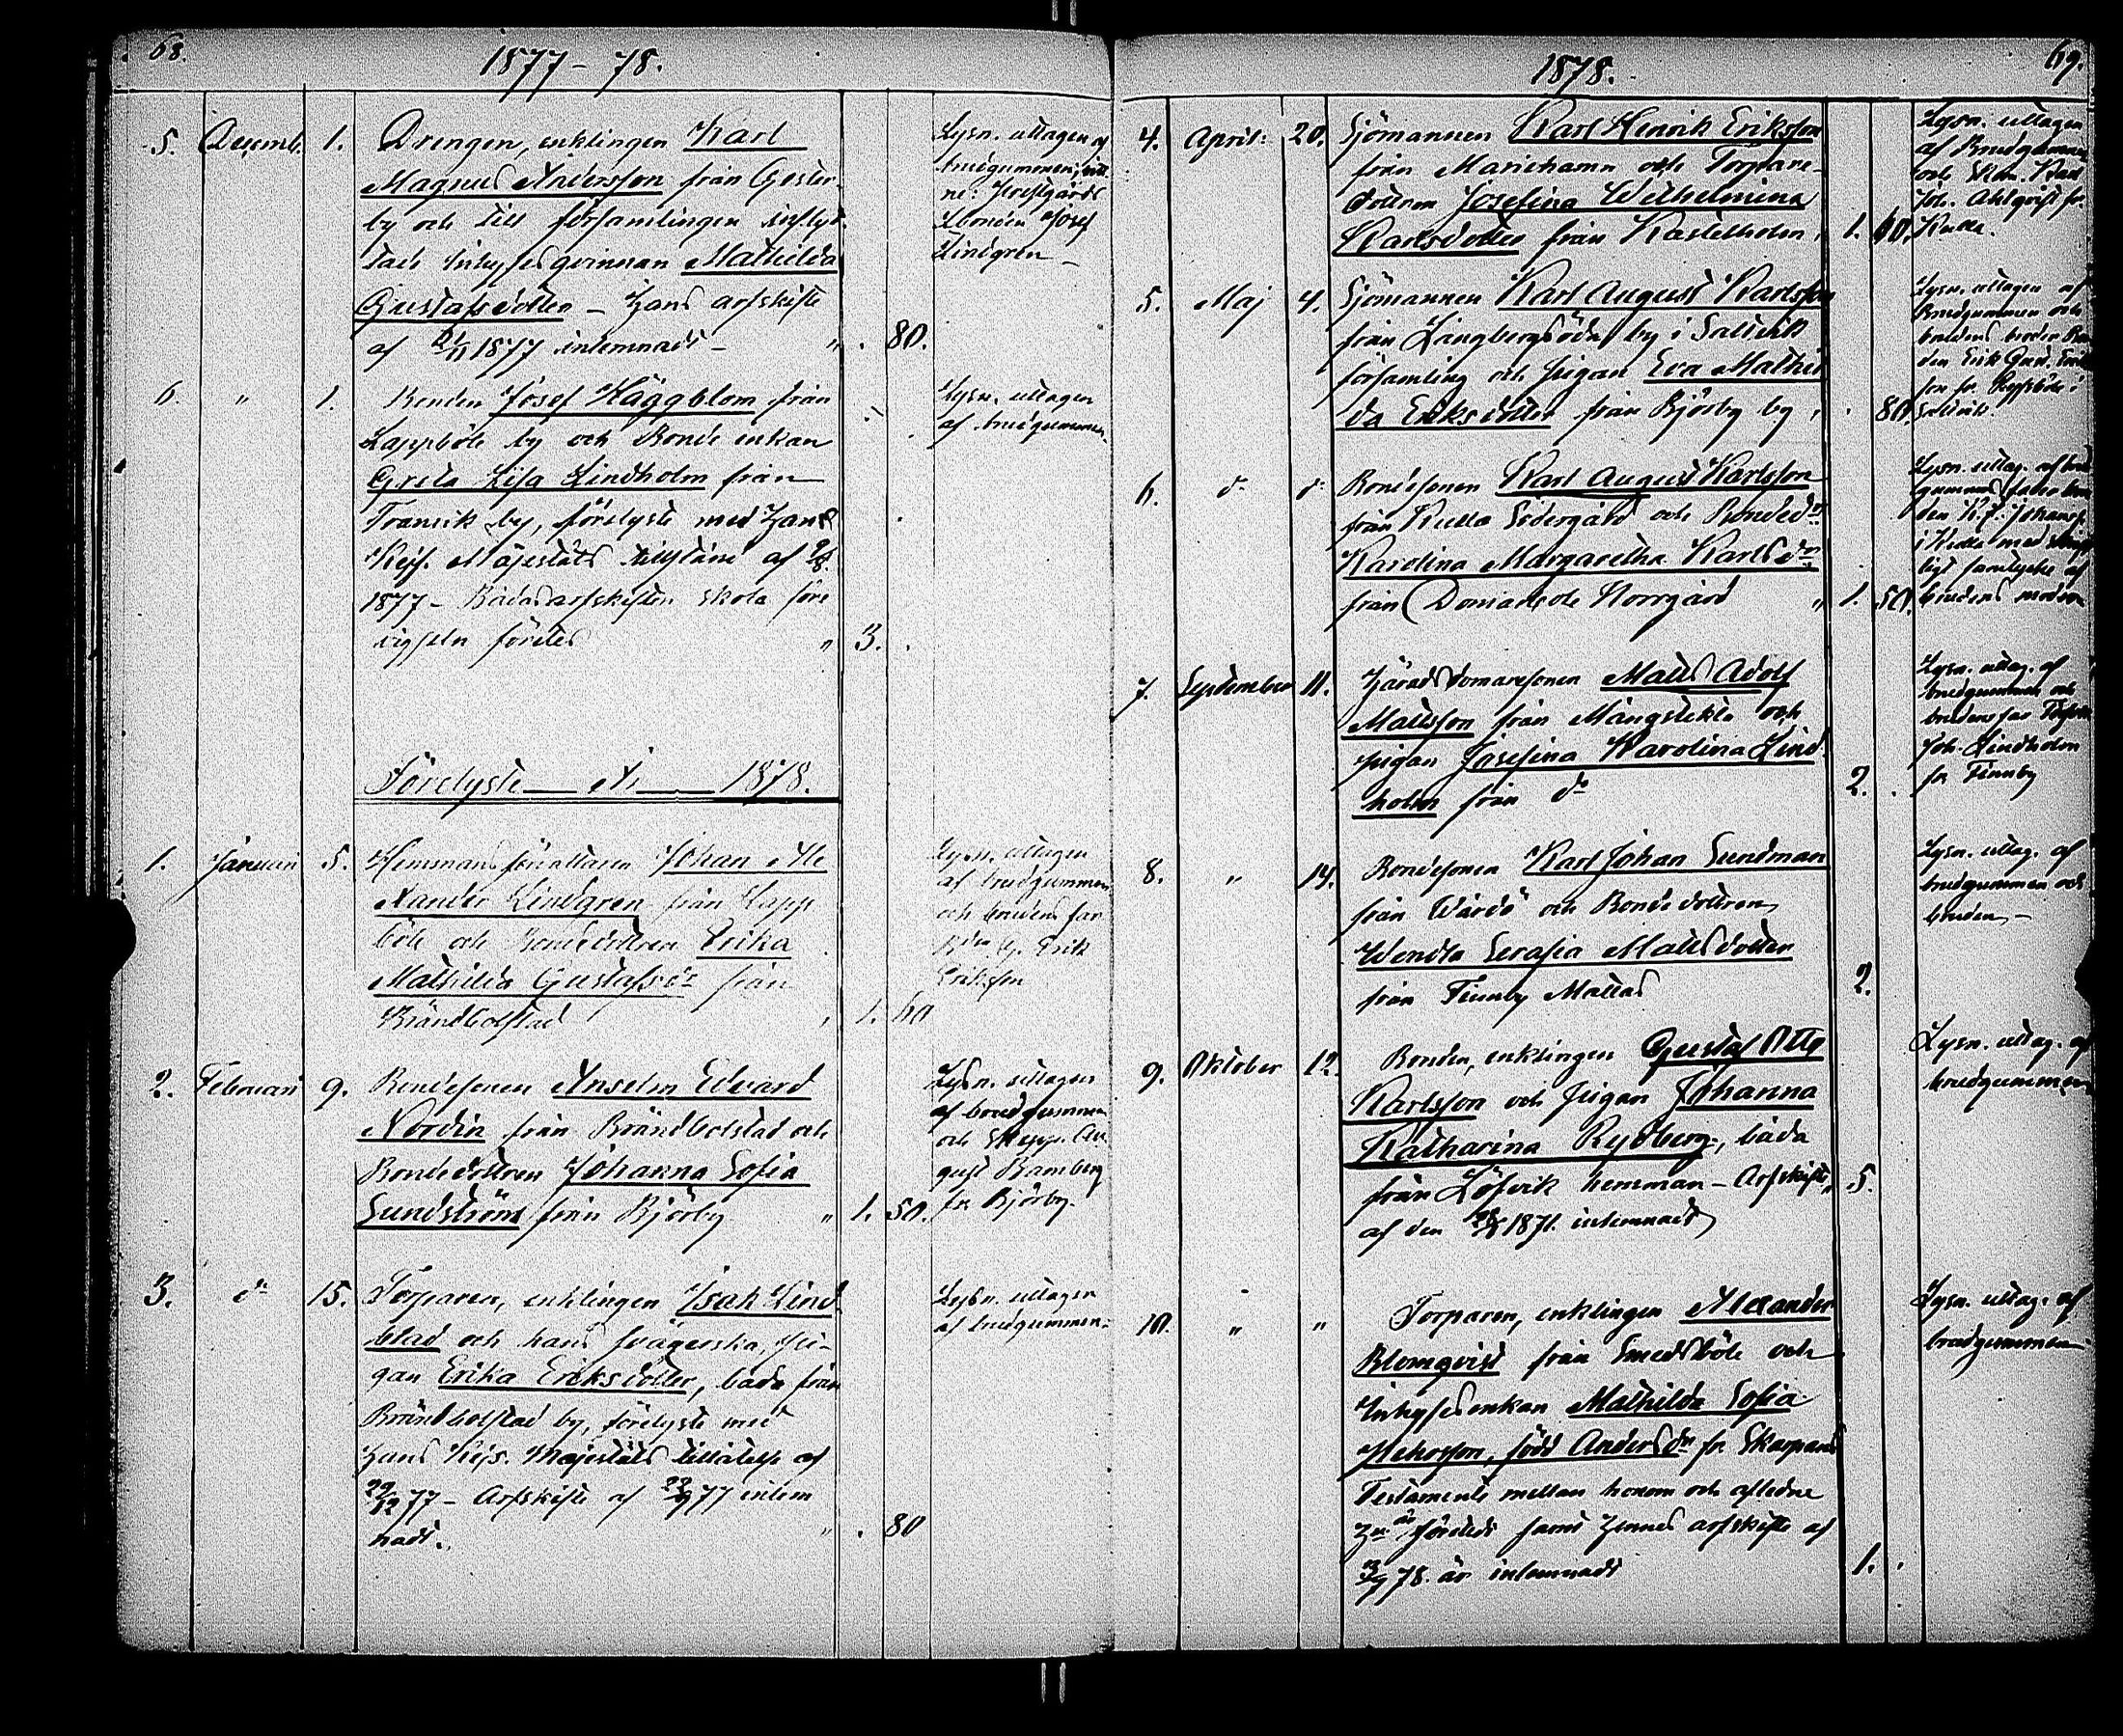 68.
1877 – 78.
5. Decemb. 1. Drengen, enklingen Karl
Magnus Andersson från Gester-
by och till församlingen inflyt-
tade inhyses qvinnan Mathilda
Gustafsdotter – Hans arfskifte
af 1877 inlemnadt – " . 80.
Lysn. uttagen af
brudgummen; vitt-
ne:
Bonden Josef
Lindgren –
6. " 1. Bonden Josef Häggblom från
Lappböle by och Bonde enkan
Greta Lisa Lindholm från
Tranvik by, förelyste med Hans
Kejs. Majestäts tillstånd af
1877 – Bådas arfskiften skola före
vigseln företes " 3. .
Lysn. uttagen
af brudgummen.
Förelyste År 1878.
1. Januari 5. Hemmansförvaltaren Johan Ale
xander Lindgren från Lapp
böle och Bondedottren Erika
Mathilda Gustafsdr från
Brändbolstad " 1. 60
Lysn. uttagen
af brudgummen
och brudens far
Erik
Eriksson
2. Februari 9. Bondesonen Anselm Edvard
Nordin från Brändbolstad och
Bondedottren Johanna Sofia
Sundström från Björby " 1. 50.
Lysn. uttagen
af brudgummen
och Skepp. Au
gust Bamberg
fr. Björby.
3. do 15. Torparen, enklingen Isak Lind
blad och hans svägerska, pi-
gan Erika Eriksdotter, båda från
Brändbolstad by, förelyste med
Hans Kejs. Majestäts tillåtelse af
22/12 77 – Arfskifte af 77 inlem
nadt. " . 80
Lysn. uttagen
af brudgummen.
1878.
69.
4. April: 20. Sjömannen Karl Henrik Eriksson
från Mariehamn och Torpare-
dottren Josefina Wilhelmina
Karlsdotter från Kastelholm, 1. 60.
Lysn. uttagen
af Brudgummen
och
Joh. Ahlqvist fr.
Kulla.
5. Maj 4. Sjömannen Karl August Karlsson
från Långbergsöda by i Saltvik
församling och pigan Eva Mathil
da Eriksdotter från Björby by, . 80.
Lysn. uttagen af
Brudgummen och
brudens broder Bon
den Erik Gust. Eriks
son fr.
Saltvik.
6. do do Bondesonen Karl August Karlsson
från Kulla Södergård och Bondedr
Karolina Margaretha Karlsdr
från Domarböle Norrgård " 1. 50.
Lysn. uttag. af brud
gummens fader Bon
den K. J. Johanss.
i Kulla med
ligt samtycke af
brudens moder
7. September 11. Häradsdomaresonen Matts Adolf
Mattsson från Mångstekta och
pigan Josefina Karolina Lind
holm från do 2. .
Lysn. uttag. af
brudgummen och
brudens far
Joh. Lindholm
fr. Finnby
8. " 14. Bondesonen Karl Johan Sundman
från Vårdö och Bondedottren
Wendla Serafia Mattsdotter
från Finnby Mattas 2.
Lysn. uttag. af
brudgummen och
bruden –
9. Oktober 12. Bonden, enklingen Gustaf Otto
Karlsson och pigan Johanna
Katharina Rydberg, båda
från Löfvik hemman – Arfskifte 5.
af den 1871. inlemnadt
Lysn. uttag. af
brudgummen
10. " " Torparen, enklingen Alexander
Blomqvist från Smedsböle och
Inhysesenkan Mathilda Sofia
född Andersdr fr. Skarpans
Testamente mellan honom och aflidne
Hu är företedt samt Hennes arfskifte af
78. är inlemnadt 1. .
Lysn. uttag. af
brudgummen